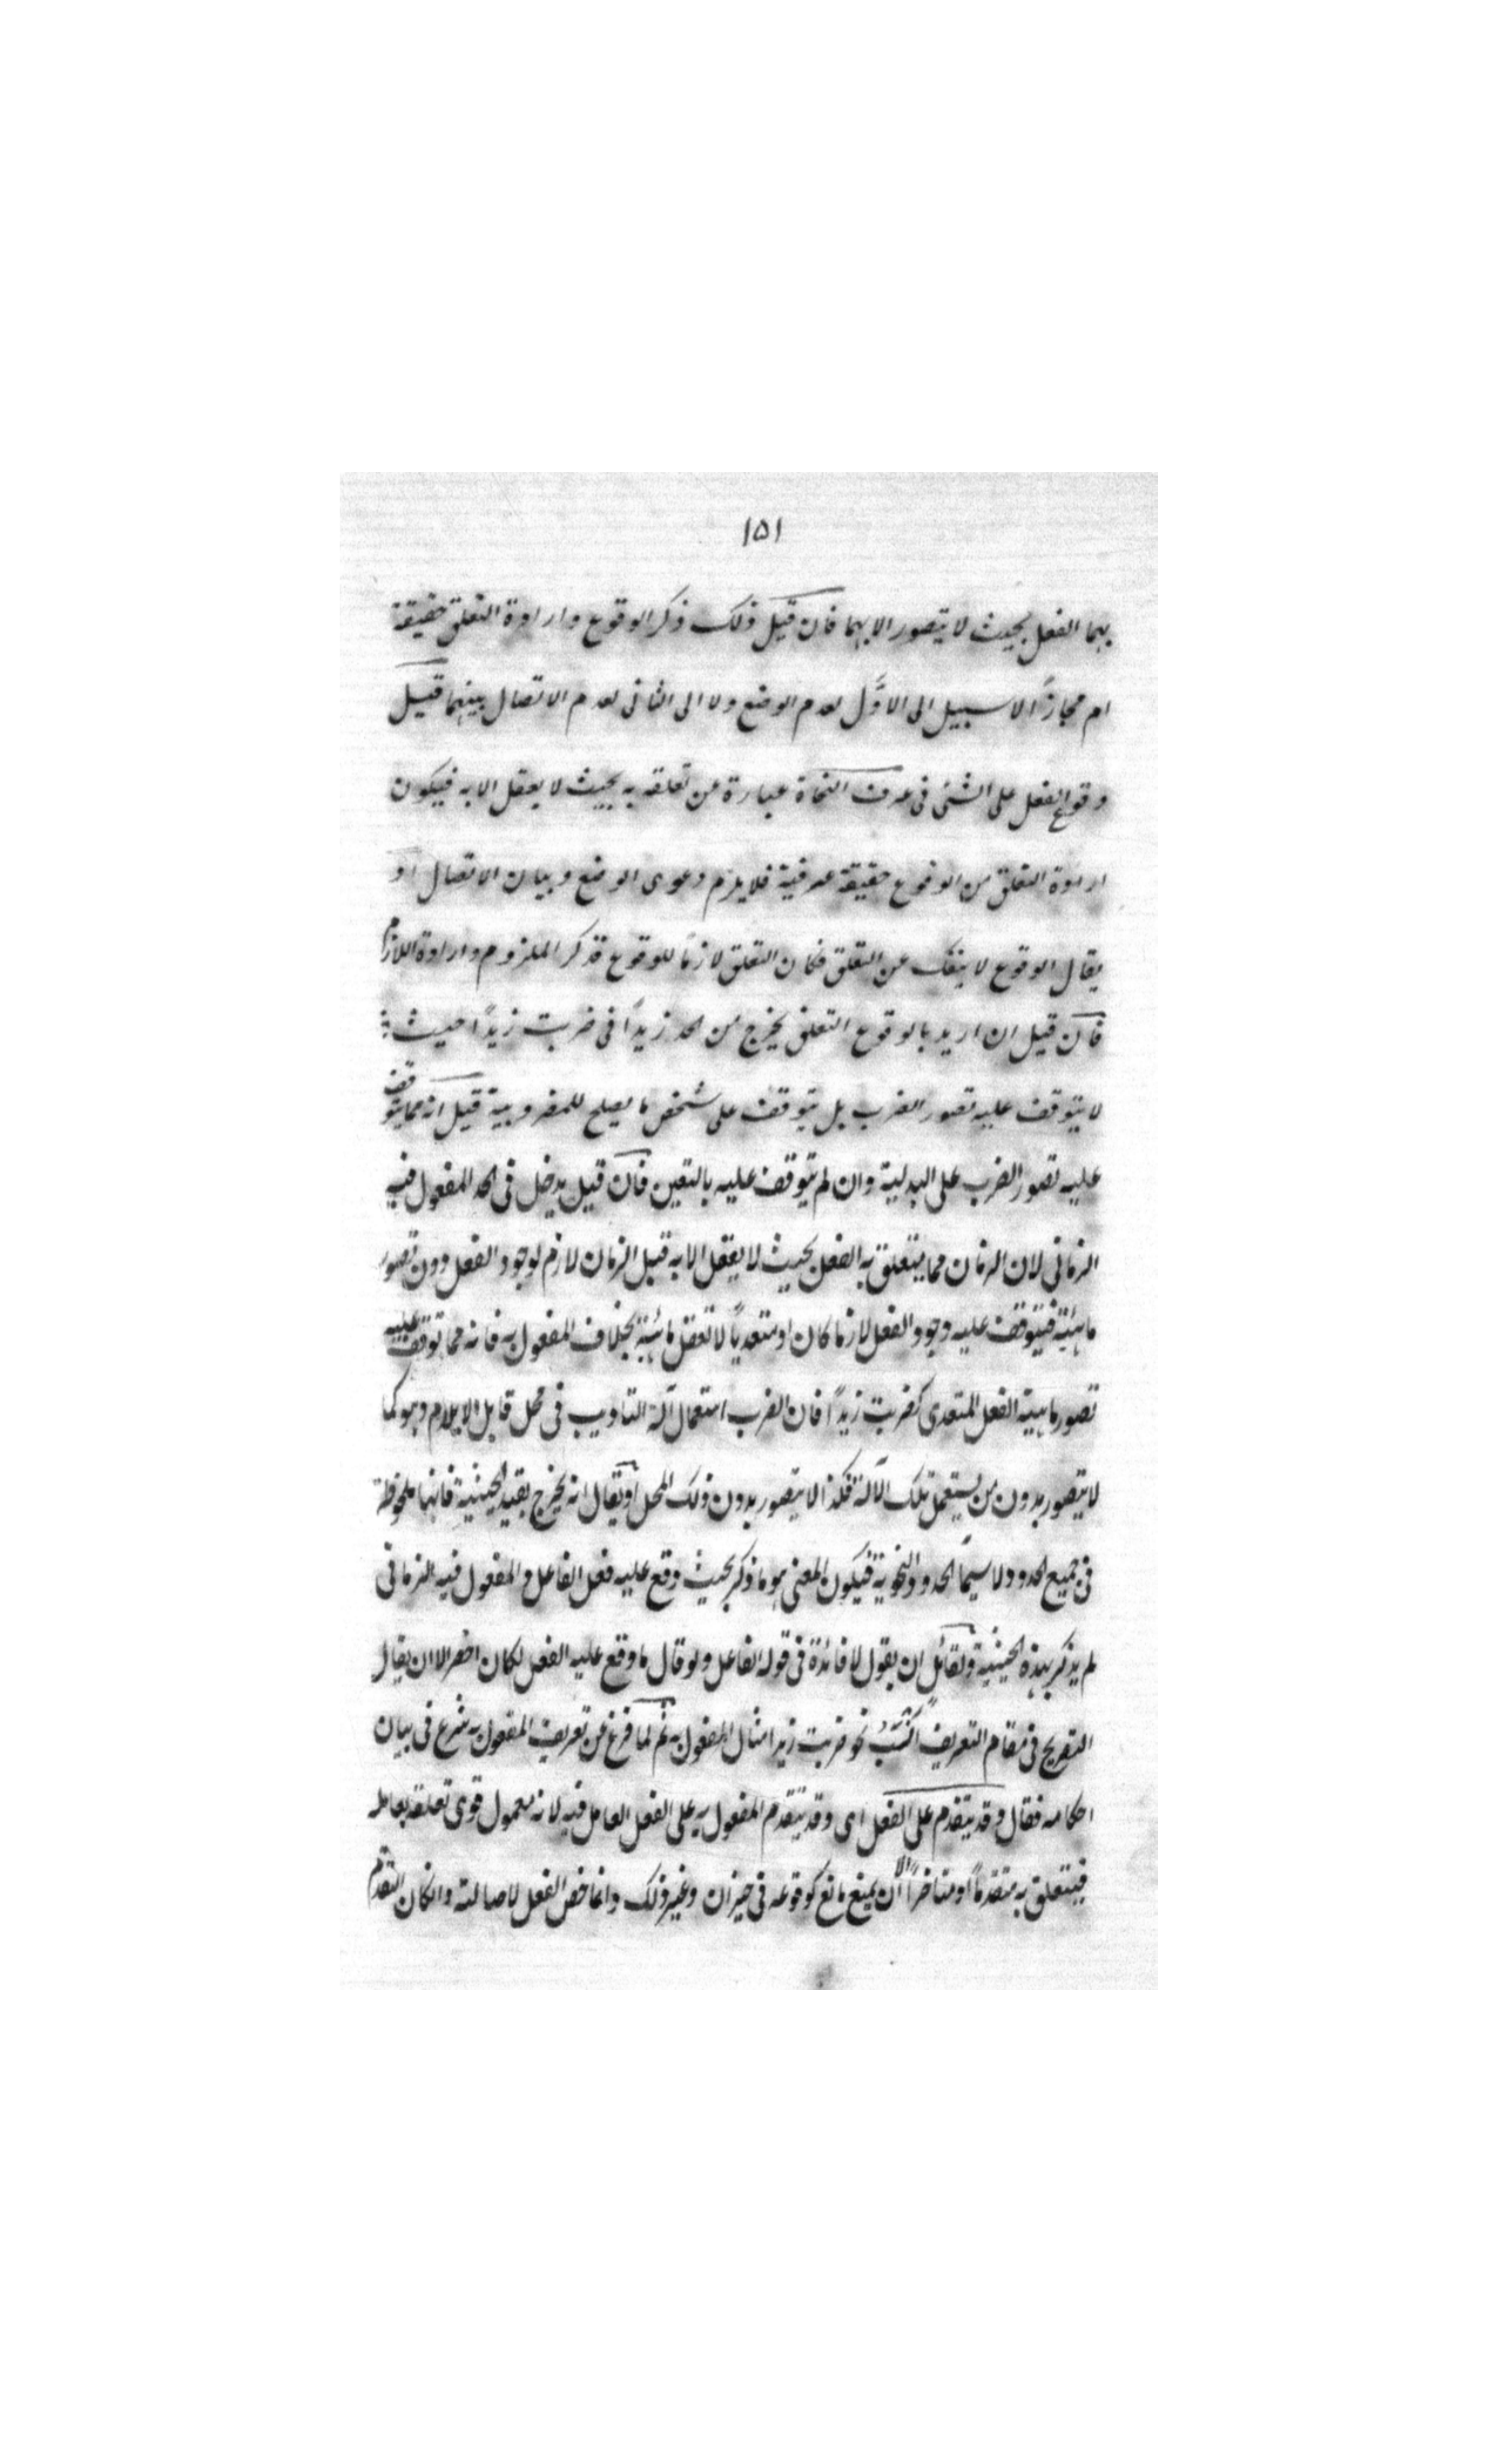 ١٥١
بهما الفعل بحيث لا يتصور الا بهما فان قيل ذلك ذكر الوقوع وارادة التعلق حقيقة
ام مجازًا لا سبيل الى الاوَّل لعدم الوضع ولا الى الثانى لعدم الاتصال بينهما قيل
وقوع الفعل على الشئ فى عرف النحاة عبارة عن تعلقه به بحيث لا يعقل الا به فيكون
ارادة التعلق من الوقوع حقيقة عرفية فلا يلزم دعوى الوضع وبيان الاتصال او
يقال الوقوع لا ينفك عن التعلق فكان التعلق لازمًا للوقوع فذكر الملزوم وارادة اللازم
فان قيل ان اريد بالوقوع التعلق يخرج من الحد زيدًا فى ضربت زيدًا حيث
لا يتوقف عليه تصور الضرب بل يتوقف على شخص ما يصلح للمضروبية قيل انه مما يتوقف
عليه تصور الضرب على البدلية وان لم يتوقف عليه بالتعين فان قيل يدخل فى الحد المفعول فيه
الزمانى لان الزمان مما يتعلق به الفعل بحيث لا يعقل الا به قيل الزمان لازم لوجود الفعل دون تصور
ماهيته فيتوقف عليه وجود الفعل لازما كان او متعديًا لا تعقل ماهيته بخلاف المفعول به فانه مما توقف عليه
تصور ماهية الفعل المتعدى كضربت زيدًا فان الضرب استعمال آلة التاديب فى محل قابل الايلام وهو كما
لا يتصور بدون من يستعمل تلك الآلة فكذا لا يتصور بدون ذلك المحل او يقال انه يخرج بقيد الحيثية فانها ملحوظة
فى جميع الحدود ولا سيما الحدود النحوية فيكون المعنى هو ما ذكر بحيث وقع عليه فعل الفاعل والمفعول فيه الزمانى
لم يذكر بهذه الحيثية ولقائل ان يقول لا فائدة فى قوله الفاعل ولو قال ما وقع عليه الفعل لكان اخصر الا ان يقال
التصريح فى مقام التعريف انسب نحو ضربت زيدا مثال المفعول به ثم لما فرغ عن تعريف المفعول به شرع فى بيان
احكامه فقال وقد يتقدم على الفعل اى وقد يتقدم المفعول به على الفعل العامل فيه لانه معمول قوى تعلقه بعامله
فيتعلق به متقدمًا او متاخرًا الا ان يمنع مانع كوقوعه فى حيزان وغير ذلك وانما خص الفعل لاصالته والكان التقدم